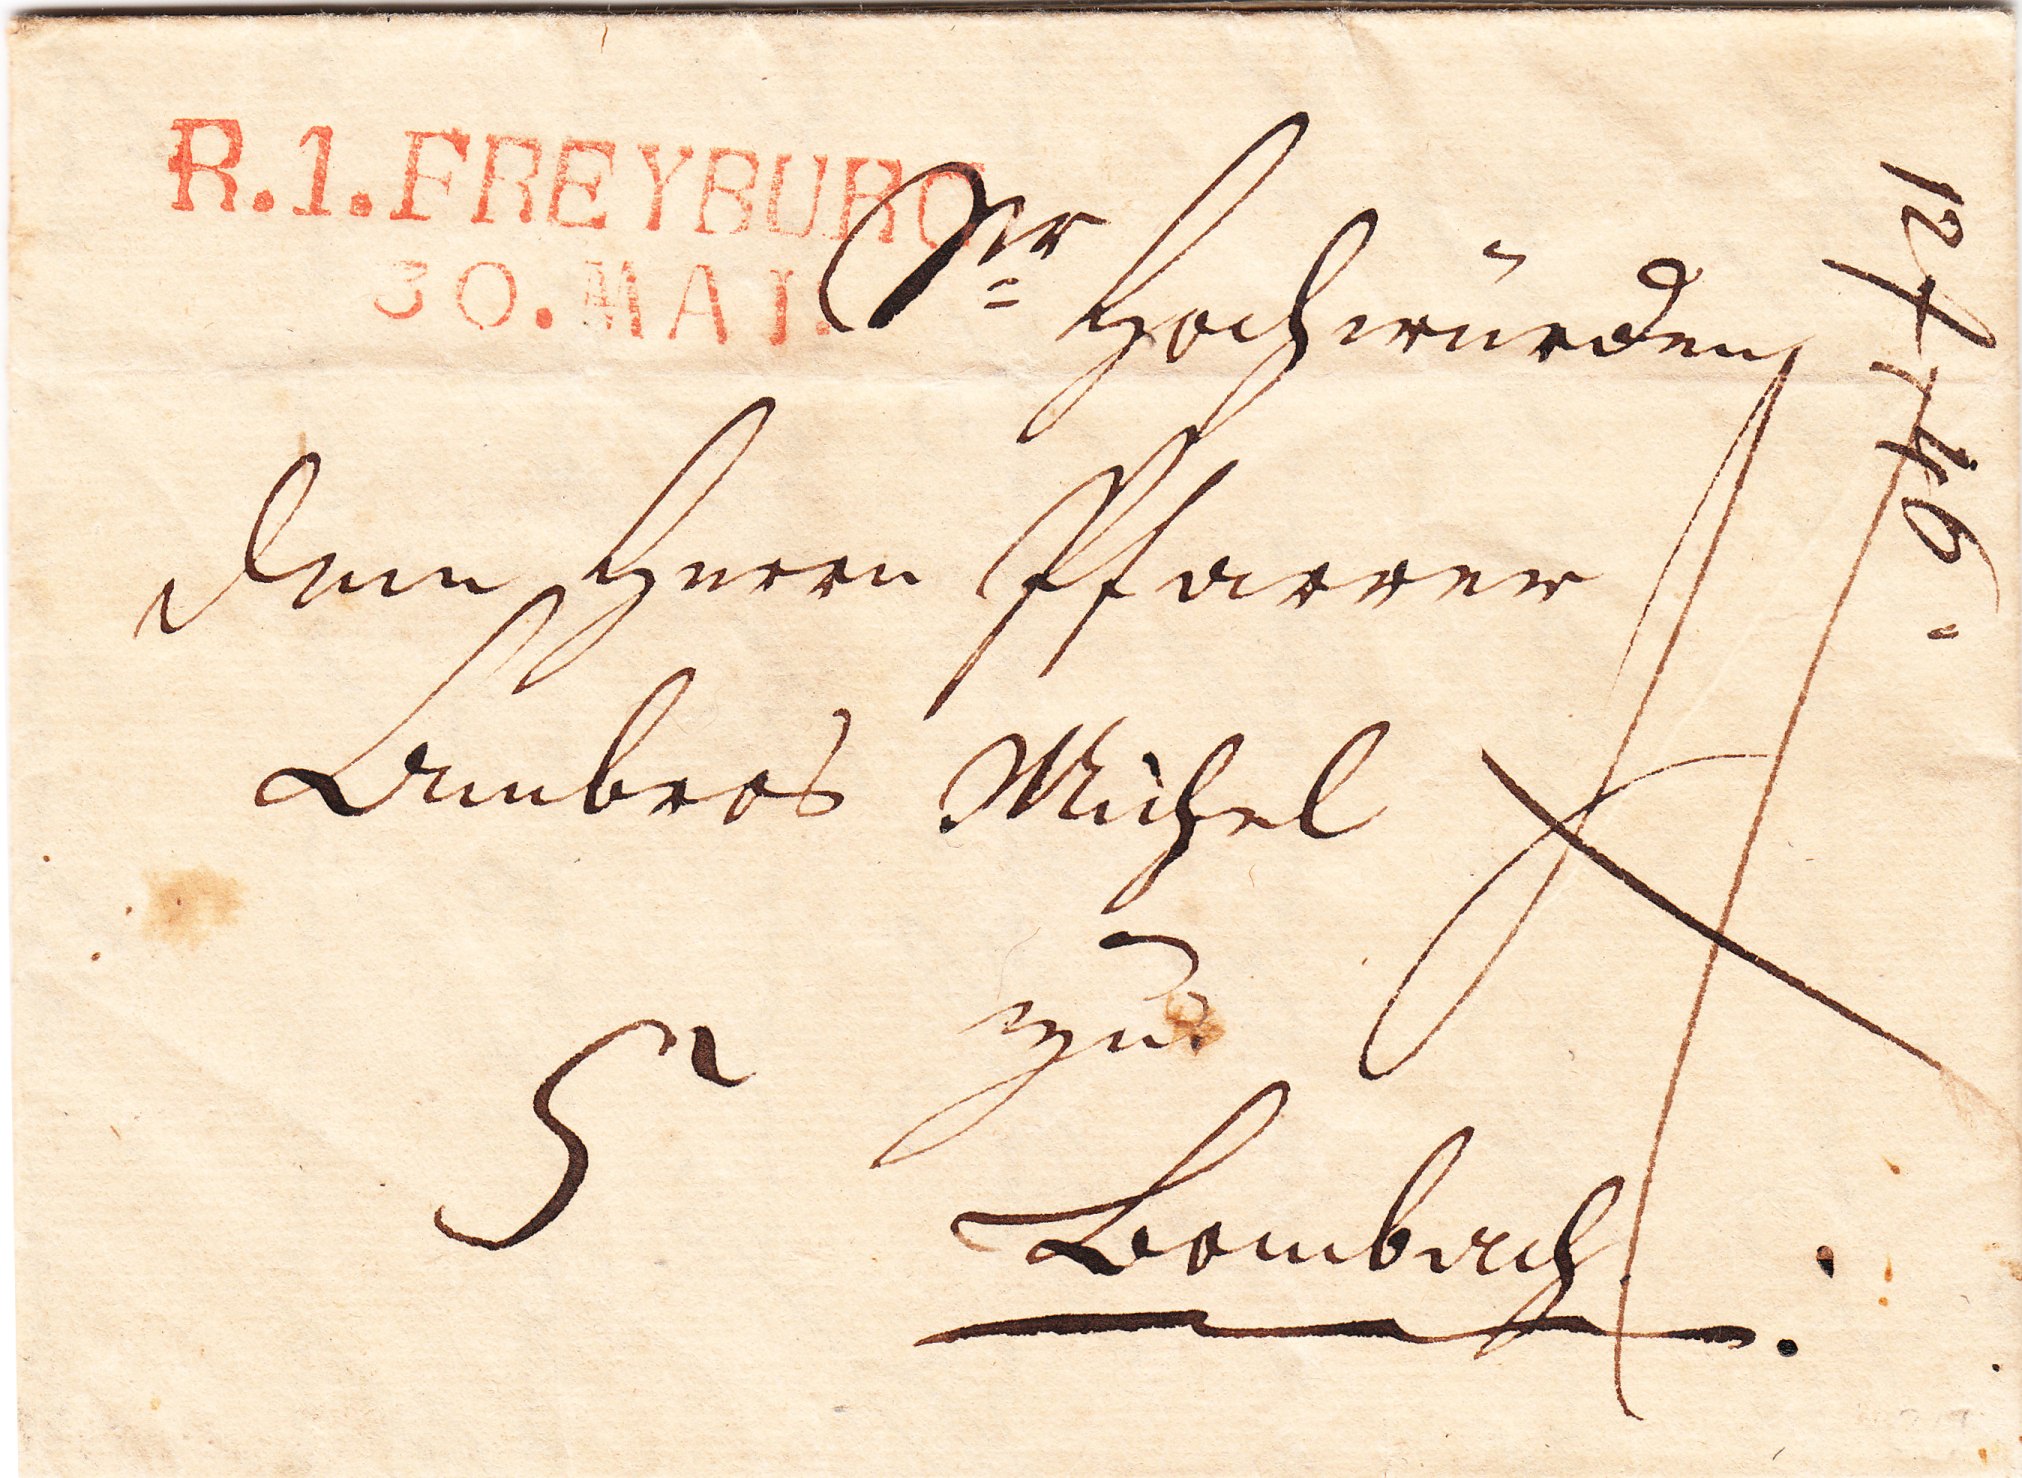 R.1.FREYBURG
30.MAI.
Sr Hochwürden
dem Herrn Pfarrer
Ambros Michel
zu
Bombach
5